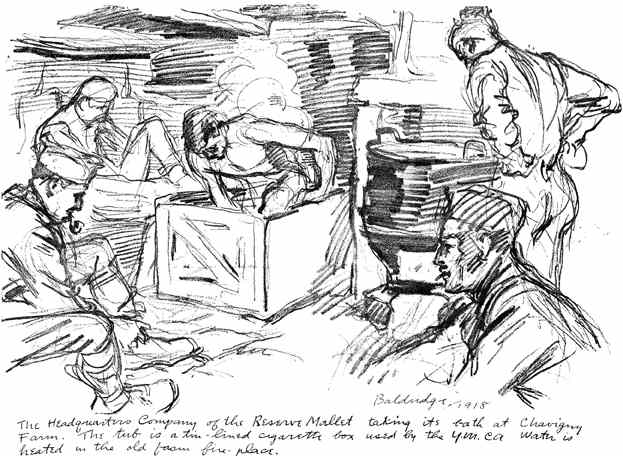 Baldridge 1918
The Headquarters Company of the Reserve Mallet taking its bath at Chavigny
Farm. The tub is a tin-lined cigarette box used by the Y.M.C.A. Water is
heated in the old farm fire-place.